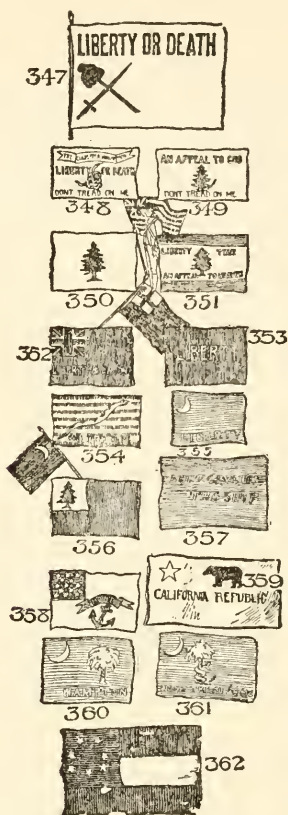 LIBERTY OR DEATH
347
LIBERTY OR DEATH
DONT TREAD ON ME
348
AN APPEAL TO GOD
DONT TREAD ON ME
349
350
LIBERTY TREE
AN APPEAL TO
351
352
LIBERTY
353
354
355
356
357
358
359
CALIFORNIA REPUBLIC
360
361
362